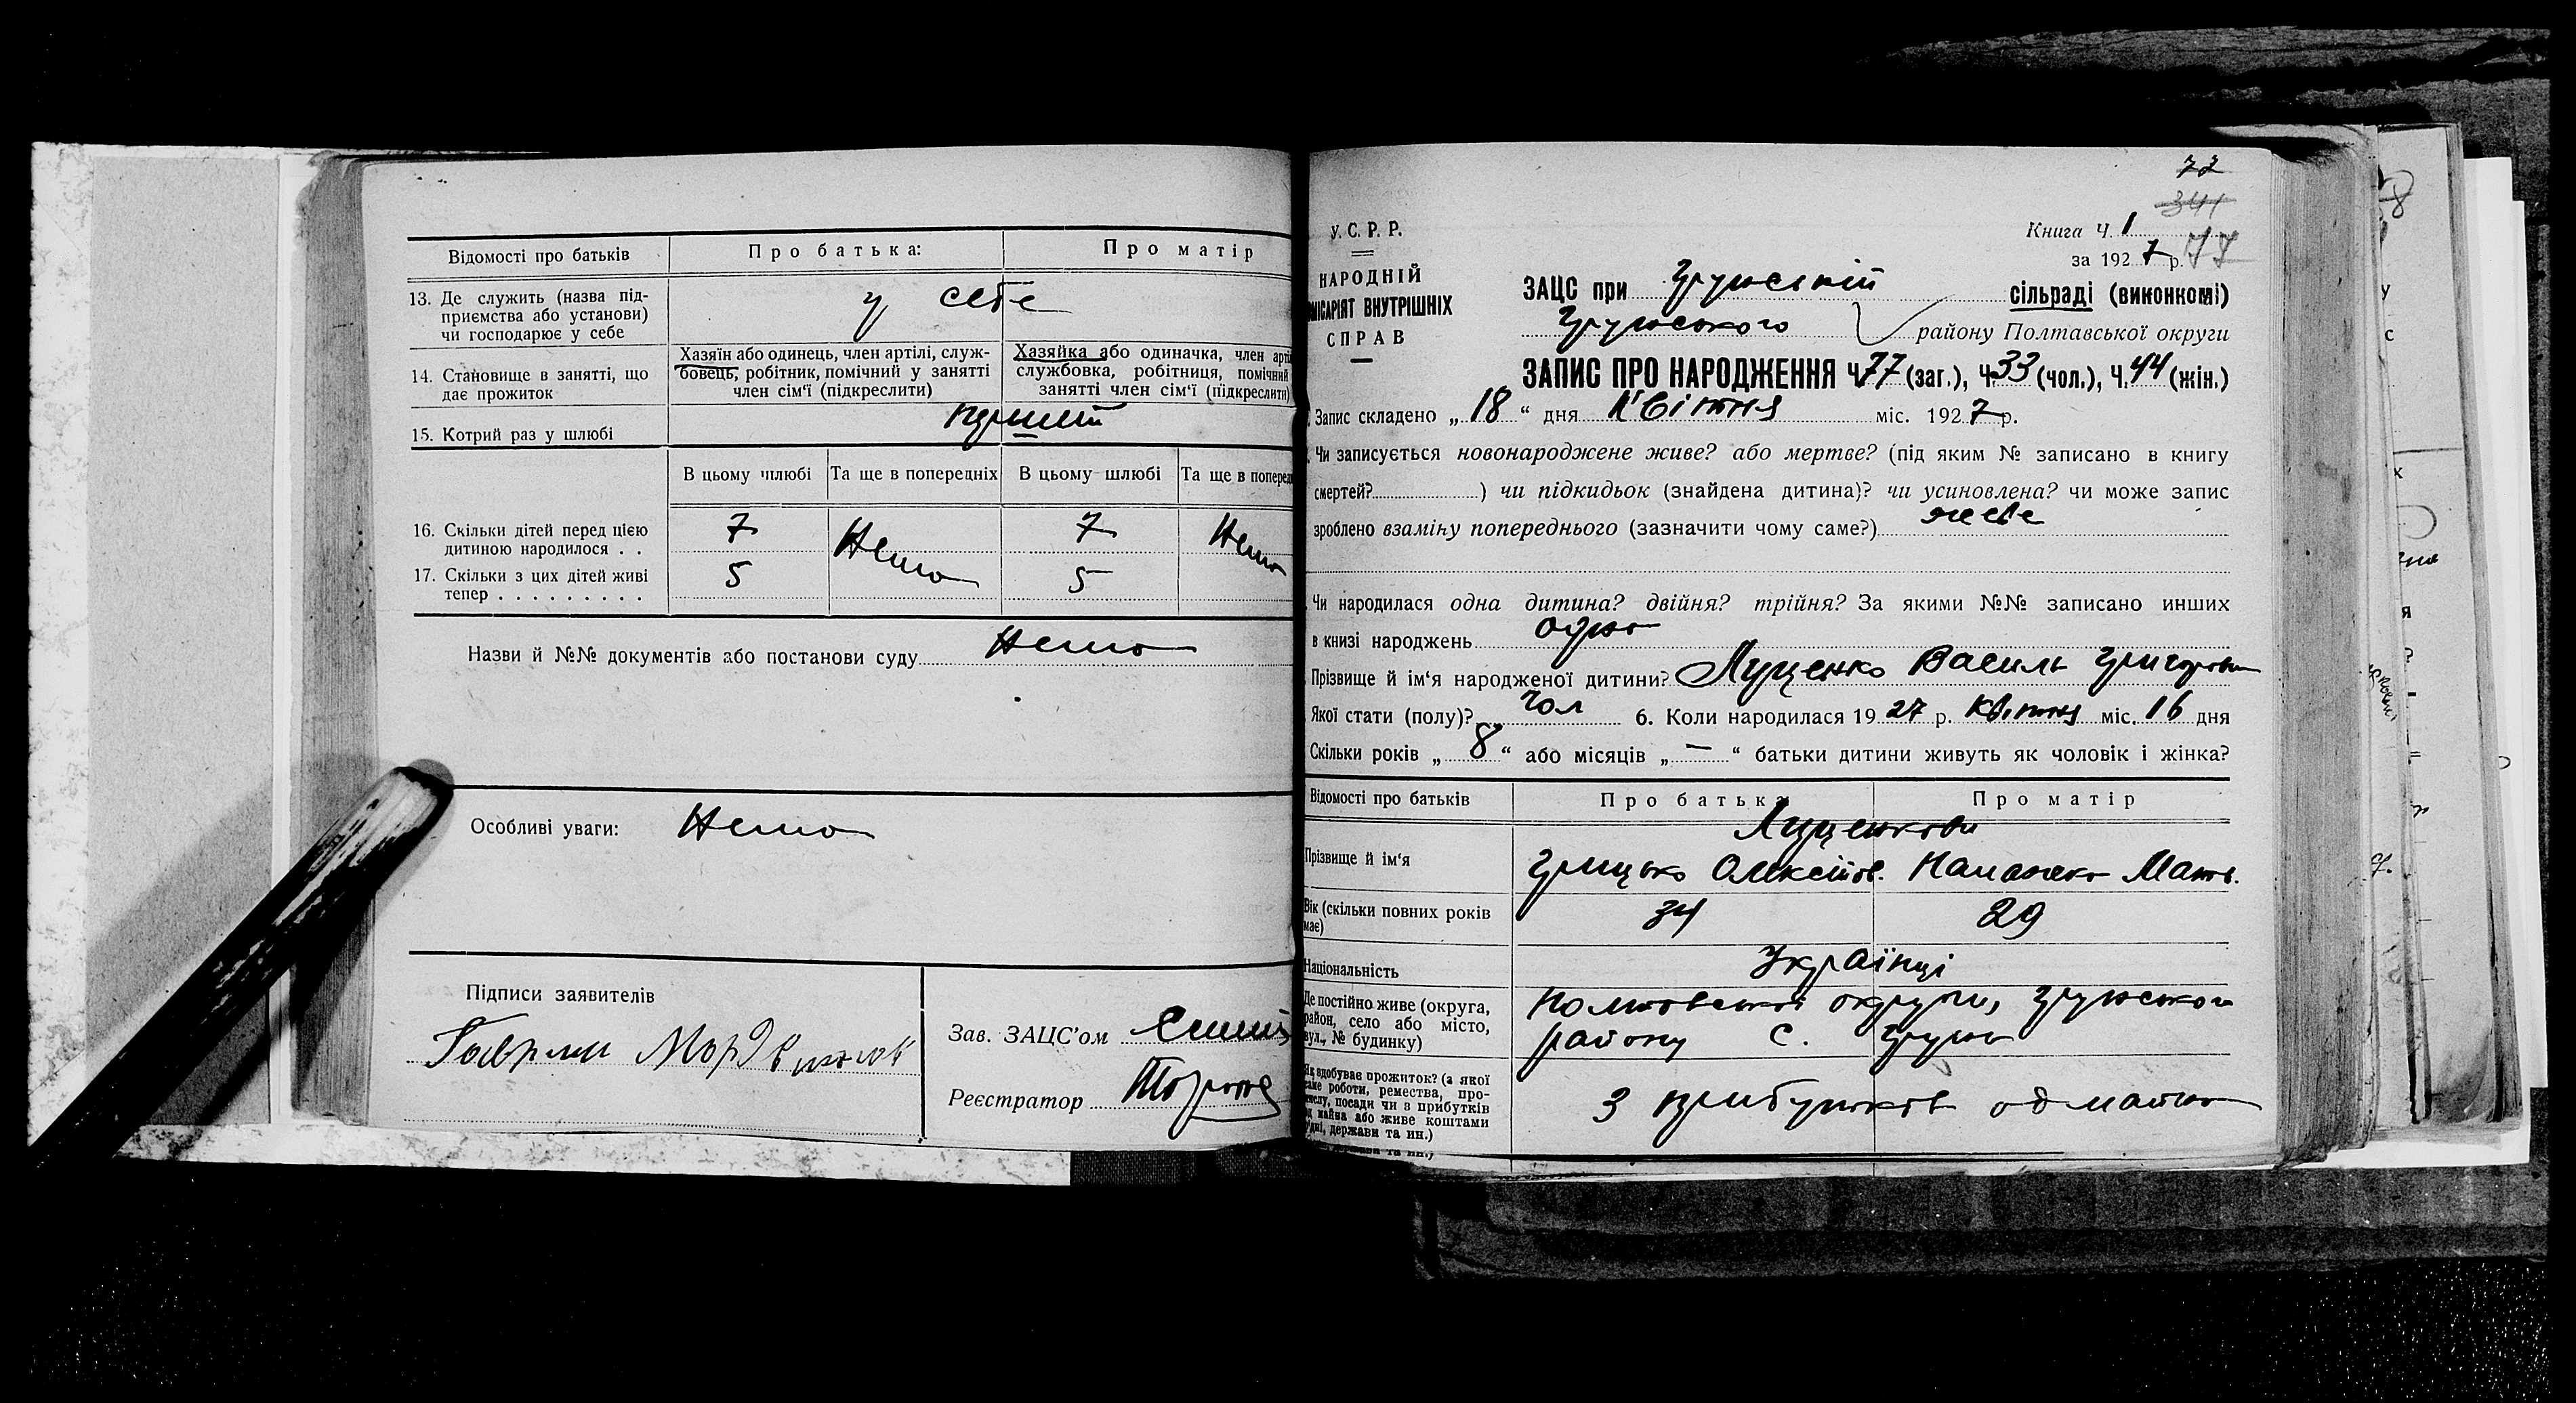 Відомості про батьків
Про батька:
Про матір
13. Де служить (назва під-
приємства або установи)
чи господарює у себе
у себе
14. Становище в занятті, що
дає прожиток
Хазяїн або одинець, член артілі, служ-
бовець, робітник, помічний у занятті
член сім'ї (підкреслити)
Хазяйка або одиначка, член арті
службовка, робітниця, помічний
занятті член сім'ї (підкреслити)
15. Котрий раз у шлюбі
перший
В цьому шлюбі
Та ще в попередніх
В цьому шлюбі
Та ще в поперед
16. Скільки дітей перед цією
дитиною народилося . .
7
Нема
7
Нема
17. Скільки з цих дітей живі
тепер . . . . . . . . .
5
5
Назви й №№ документів або постанови суду Нема
Особливі уваги: Нема
Підписи заявителів
Зав. ЗАЦС'ом
Реєстратор
72
341
У.С.Р.Р.
НАРОДНІЙ
МІСАРІЯТ ВНУТРІШНІХ
СПРАВ
Книга Ч. 1
за 1927 р. 77
ЗАЦС при Грунській сільраді (виконкомі)
Грунського району Полтавської округи
ЗАПИС ПРО НАРОДЖЕННЯ Ч. 77 (заг.), Ч. 33 (чол.), Ч. 44 (жін.)
Запис складено „ 18 “ дня Квітня міс. 1927 р.
Чи записується новонароджене живе? або мертве? (під яким № записано в книгу
смертей? ) чи підкидьок (знайдена дитина)? чи усиновлена? чи може запис
зроблено взаміну попереднього (зазначити чому саме?) живе
Чи народилася одна дитина? двійня? трійня? За якими №№ записано инших
в книзі народжень одна
Прізвище й ім'я народженої дитини? Луценко Василь Григорович
Якої стати (полу)? Чол 6. Коли народилася 1927 р. Квітня міс. 16 дня
Скільки років „ 8 “ або місяців „ — “ батьки дитини живуть як чоловік і жінка?
Відомості про батьків
Про батька
Про матір
Луценкови
Прізвище й ім'я
Грицько Олексійов.
Наталка Матв.
Вік (скільки повних років
має)
34
29
Національність
Українці
Де постійно живе (округа,
район, село або місто,
вул., № будинку)
Полтавської округи, Грунського
району с. Грунь
Як здобуває прожиток? (з якої
саме роботи, ремества, про-
мислу, посади чи з прибутків
од майна або живе коштами
рідні, держави та ин.)
З прибутків од майна